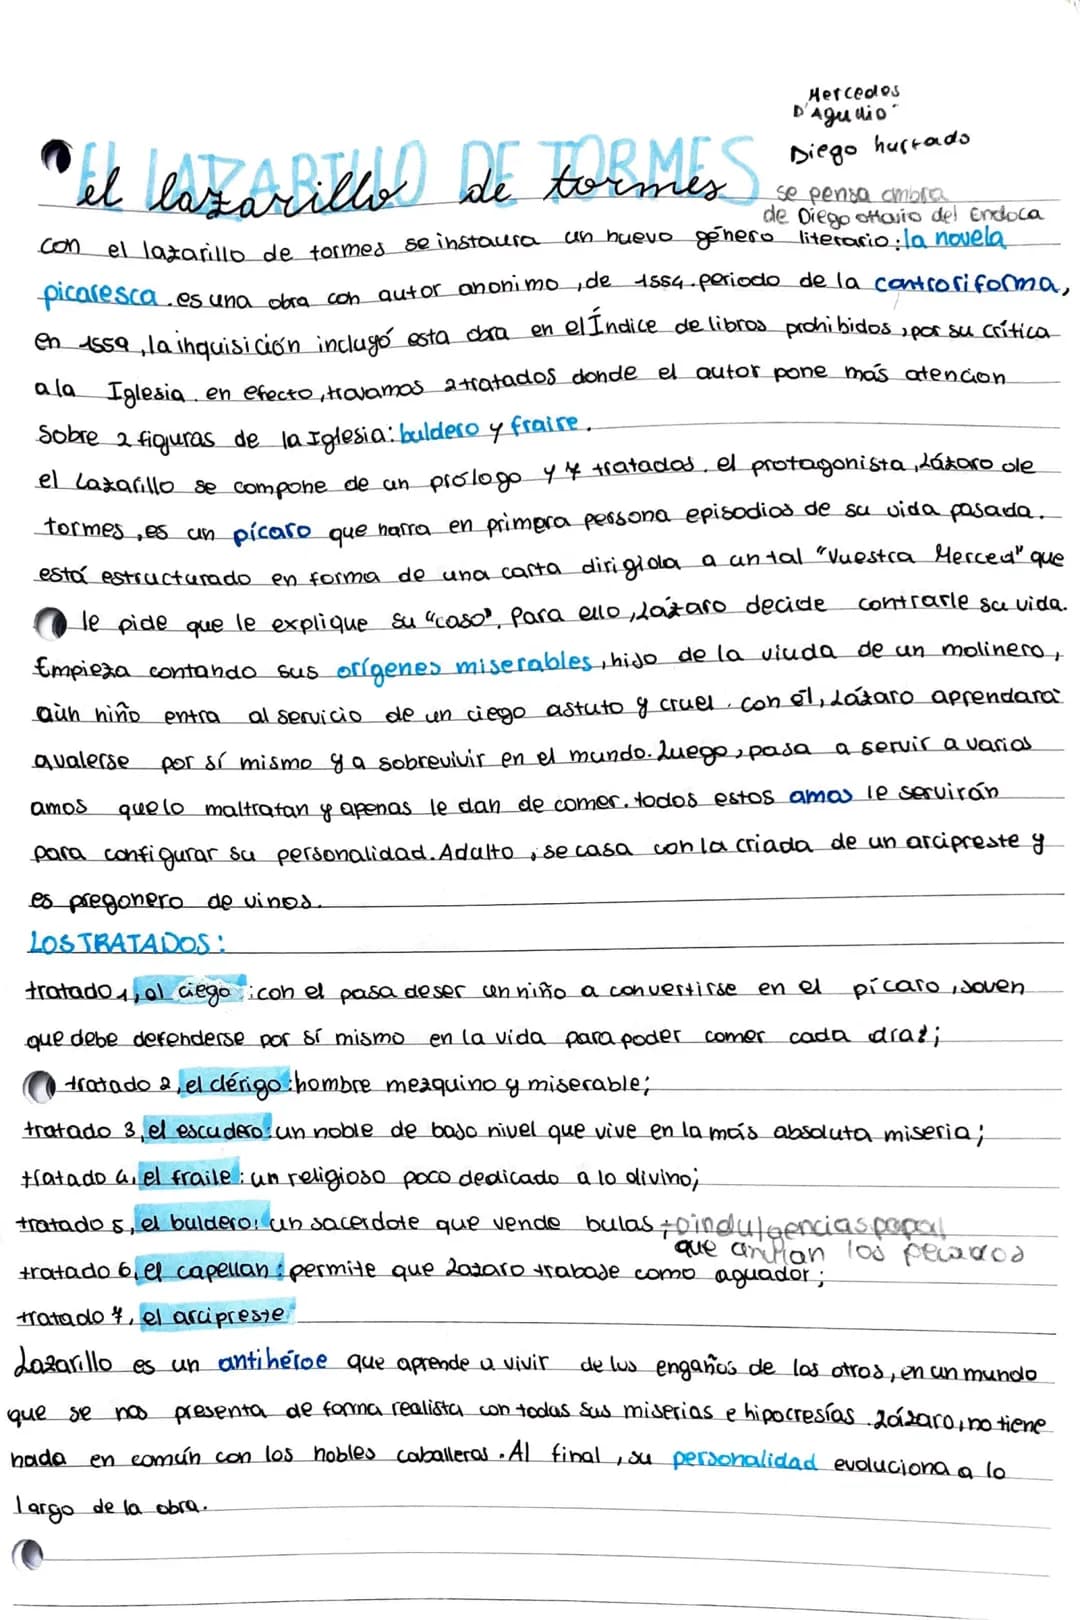 Mercedes
D'Agudio
Diego hurtado
EL LAZARILLO DE TORMES
el lazarillo de tormes
se pensa ambra
de Diego del Endoca
con el lazarillo de tormes se instaura un nuevo género literario: la novela
picaresca. es una obra con autor anonimo, de 1554. periodo de la controriforma,
en 1559, la inquisición incluyó esta obra en el Índice de libros prohibidos, por su crítica
a la Iglesia. en efecto, trovamos 2 tratados donde el autor pone más atencion
Sobre 2 figuras de la Iglesia: buldero y fraire.
el Lazarillo se compone de un prólogo y 7 tratados. el protagonista, Lázaro de
tormes, es un pícaro que narra en primera persona episodios de su vida pasada.
está estructurado en forma de una carta dirigida a un tal "Vuestra Merced" que
le pide que le explique su "caso". Para ello, Lázaro decide contrarle su vida.
Empieza contando sus orígenes miserables, hijo de la viuda de un molinero,
aùn niño entra al servicio de un ciego astuto y cruel. con él, Lázaro aprendará
a valerse por sí mismo y a sobrevivir en el mundo. Luego, pasa a servir a varios
amos que lo maltratan y apenas le dan de comer. todos estos amos le servirán
para configurar su personalidad. Adulto, se casa con la criada de un arcipreste y
es pregonero de vinos.
LOS TRATADOS:
tratado 1, el ciego: con el pasa de ser un niño a convertirse en el pícaro, joven
que debe defenderse por sí mismo en la vida para poder comer cada día;
tratado 2, el clérigo: hombre mezquino y miserable;
tratado 3, el escudero: un noble de bajo nivel que vive en la más absoluta miseria;
tratado 4, el fraile: un religioso poco dedicado a lo divino;
tratado 5, el buldero: un sacerdote que vende bulas indulgencias papal
que los pecados
tratado 6, el capellan: permite que Lazaro trabaje como aguador;
tratado 7, el arcipreste
Lazarillo es un antihéroe que aprende a vivir de los engaños de los otros, en un mundo
que se nos presenta de forma realista con todas sus miserias e hipocresías. Lázaro, no tiene
nada en común con los nobles caballeros. Al final, su personalidad evoluciona a lo
largo de la obra.